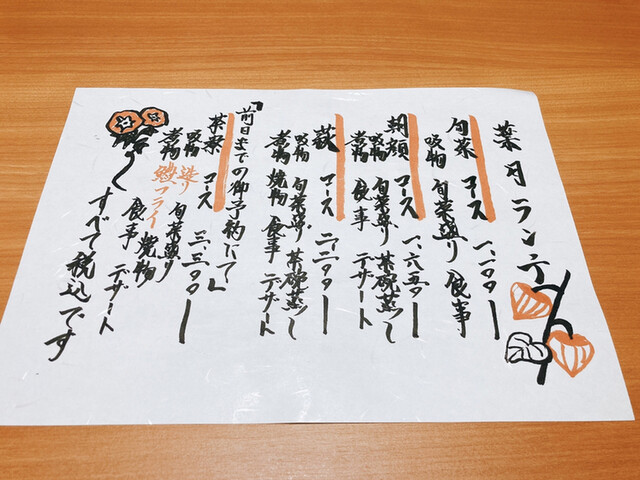 葉月ランチ
旬菜コース 一、二〇〇ー
吸物 旬菜盛り 食事
朝顔コース 一、六五〇ー
吸物 旬菜盛り 茶碗蒸し
煮物 食事 デザート
萩コース 二、二〇〇ー
吸物 旬菜盛り 茶碗蒸し
煮物 焼物 食事 デザート
「前日までの御予約にて」
コース 三、三〇〇ー
吸物 造り 旬菜盛り
煮物 鱧フライ 焼物
食事 デザート
すべて税込です